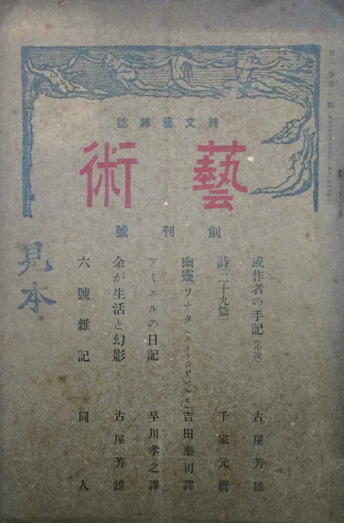 純文藝雜誌
藝術
創刊號
或作者の手記(小說) 古屋芳雄
詩(二十九篇) 千家元麿
幽靈ソナタ(ストリンドベルヒ) 吉田泰司譯
アミエルの日記 早川孝之譯
余が生活と幻影 古屋芳雄
六號雜記 同人
見本